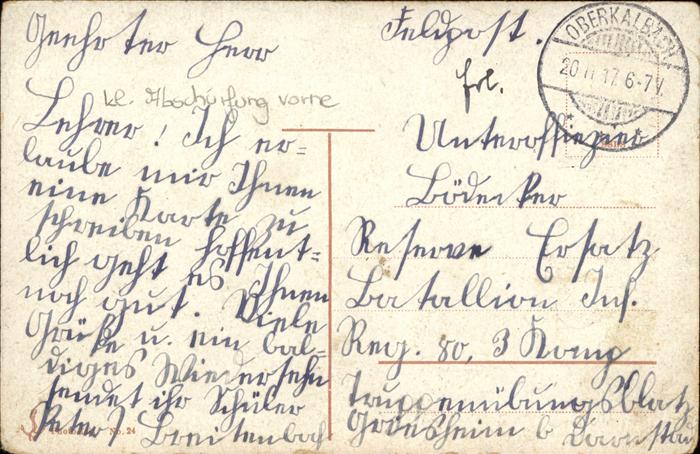 Geehrter Herr
kl. Abschürfung vorne
Lehrer! Ich er=
laube mir Ihnen
eine Karte zu
schreiben hoffent=
lich geht es Ihnen
noch gut. Viele
Grüße u. ein bal=
diges Wiedersehn
sendet ihr Schüler
Peter Breitenbach
No. 24
Feldpost.
frl.
OBERKALBACH
20 11 17. 6-7V.
Unteroffizier
Bödecker
Reserve Ersatz
Batallion Inf.
Reg. 80, 3 Komp
Truppenübungsblatz
Griesheim b Darmstad